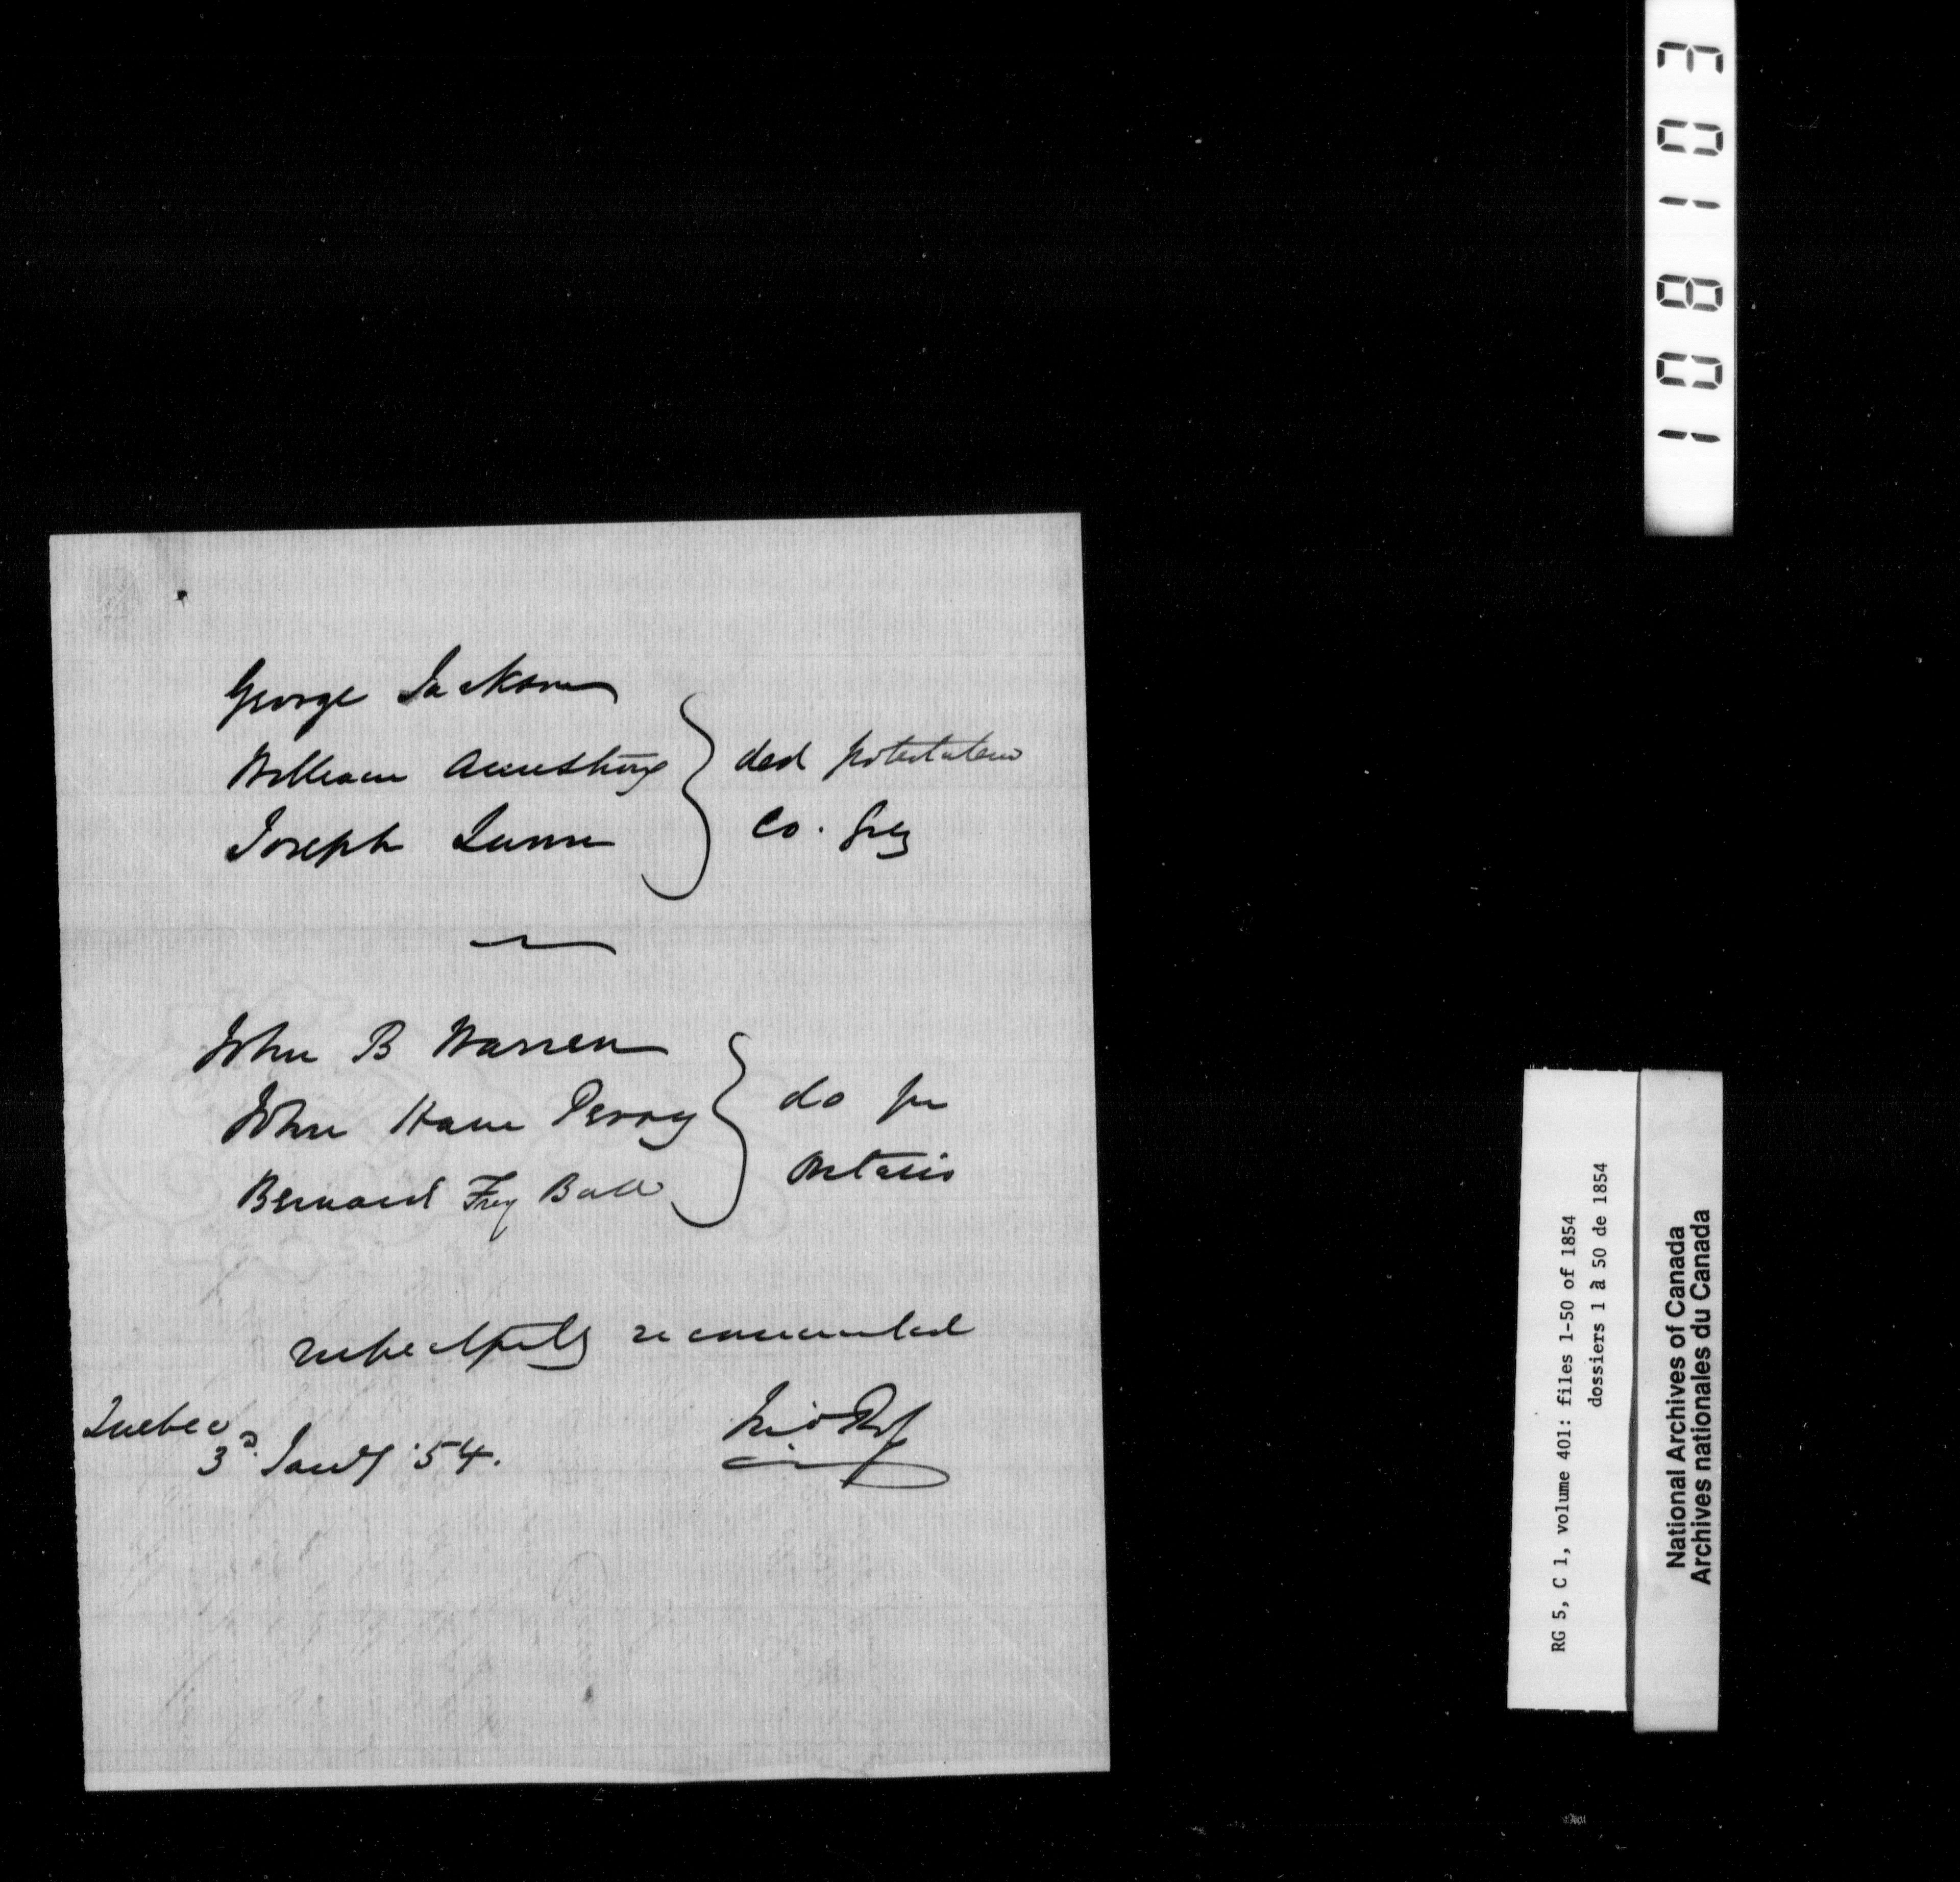 George Jackson
William Armstrong
Joseph Lunn
ded potestatem
Co. Grey
John B Warren
John Ham Perry
Bernard Frey Ball
do for
Ontario
respectfully recommended
Quebec
3d. Jany '54.
Jno Rolph
108103
RG 5, C 1, volume 401: files 1-50 of 1854
dossiers 1 à 50 de 1854
National Archives of Canada
Archives nationales du Canada